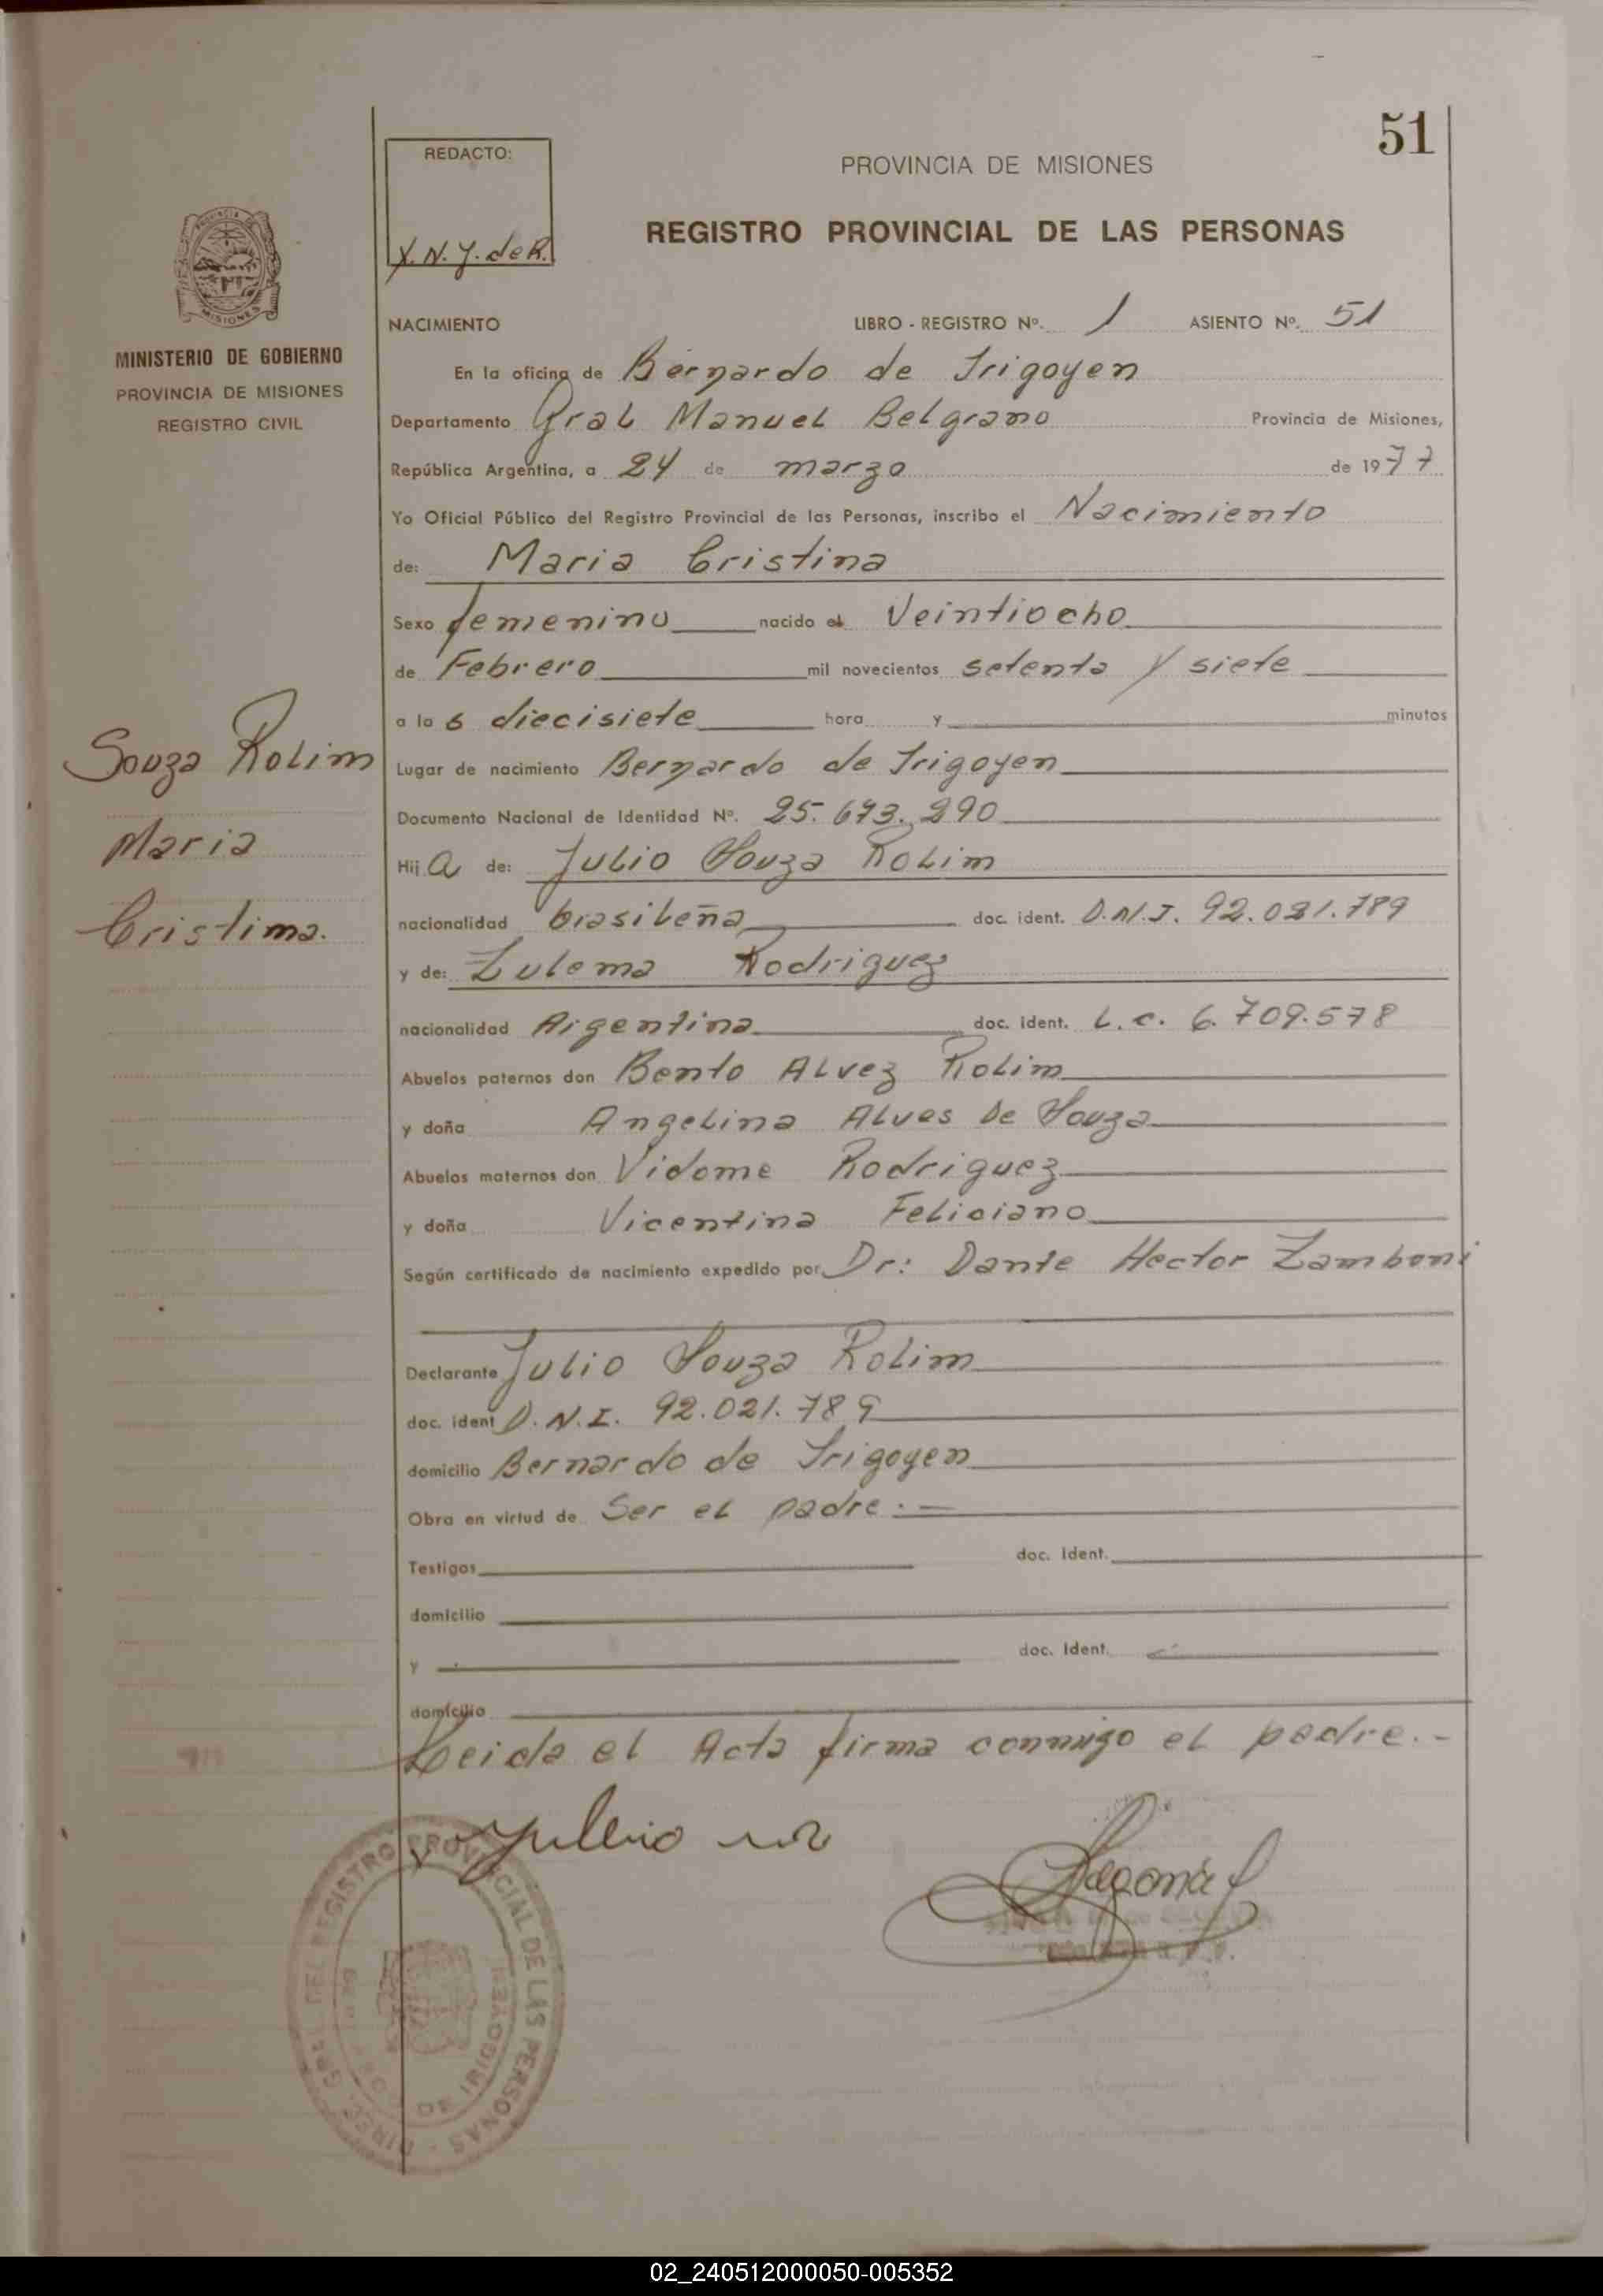 51
REDACTO:
X.N.Y. de R.
PROVINCIA DE MISIONES
REGISTRO PROVINCIAL DE LAS PERSONAS
MISIONES
MINISTERIO DE GOBIERNO
PROVINCIA DE MISIONES
REGISTRO CIVIL
NACIMIENTO LIBRO - REGISTRO Nº. 1 ASIENTO Nº. 51
En la oficina de Bernardo de Irigoyen
Departamento Gral Manuel Belgrano Provincia de Misiones,
República Argentina, a 24 de marzo de 1977
Yo Oficial Público del Registro Provincial de las Personas, inscribo el Nacimiento
de: Maria Cristina
Sexo femenino nacido el Veintiocho
de Febrero mil novecientos setenta y siete
a la s diecisiete hora y minutos
Souza Rolim
Maria
Cristina.
Lugar de nacimiento Bernardo de Irigoyen
Documento Nacional de Identidad Nº. 25.693.290
Hij a de: Julio Souza Rolim
nacionalidad brasileña doc. ident. D.N.I. 92.021.789
y de: Zulema Rodriguez
nacionalidad Argentina doc. ident. L.c. 6.709.578
Abuelos paternos don Bento Alvez Rolim
y doña Angelina Alves De Souza
Abuelos maternos don Vidome Rodriguez
y doña Vicentina Feliciano
Según certificado de nacimiento expedido por Dr: Dante Hector Zamboni
Declarante Julio Souza Rolim
doc. ident D.N.I. 92.021.789
domicilio Bernardo de Irigoyen
Obra en virtud de Ser el padre.-
Testigos doc. Ident.
domicilio
y doc. Ident.
domicilio
Leida el Acta firma conmigo el padre.-
DIREC. GRAL. DEL REGISTRO PROVINCIAL DE LAS PERSONAS
DE IRIGOYEN
02_240512000050-005352